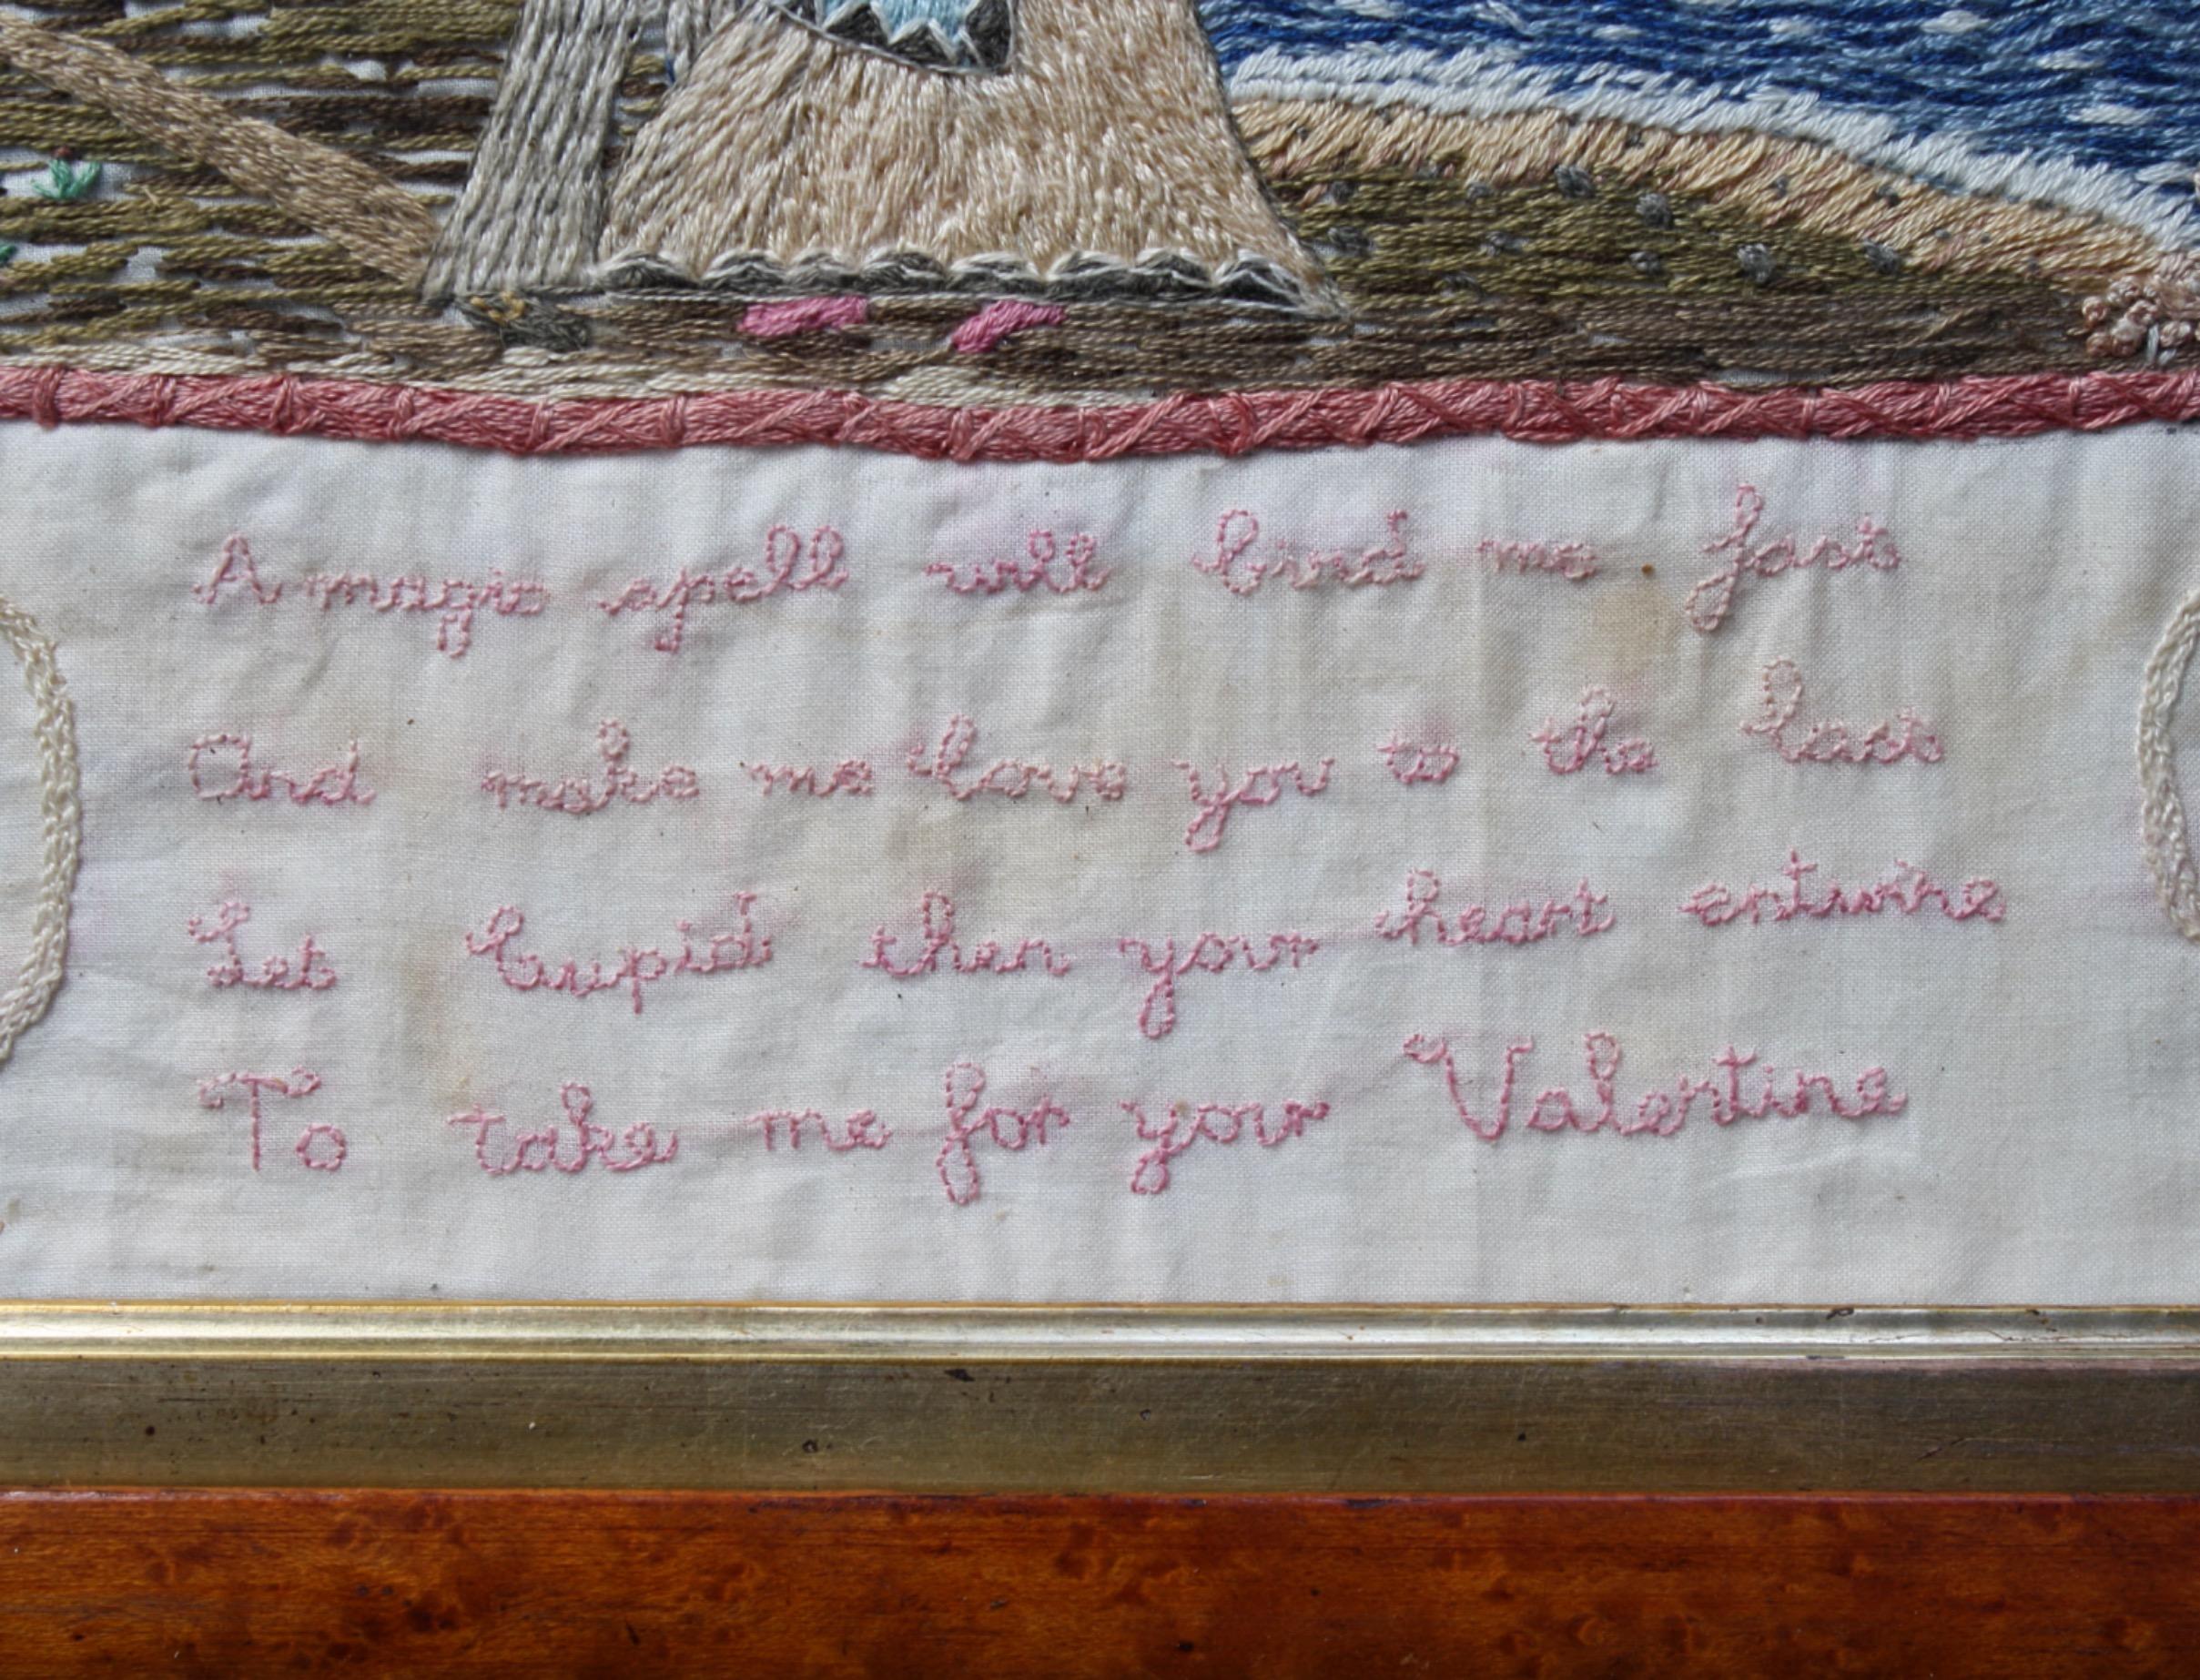 A magic spell will bind me fast
And make me love you to the last
Let Cupid then your heart entwine
To take me for your Valentine